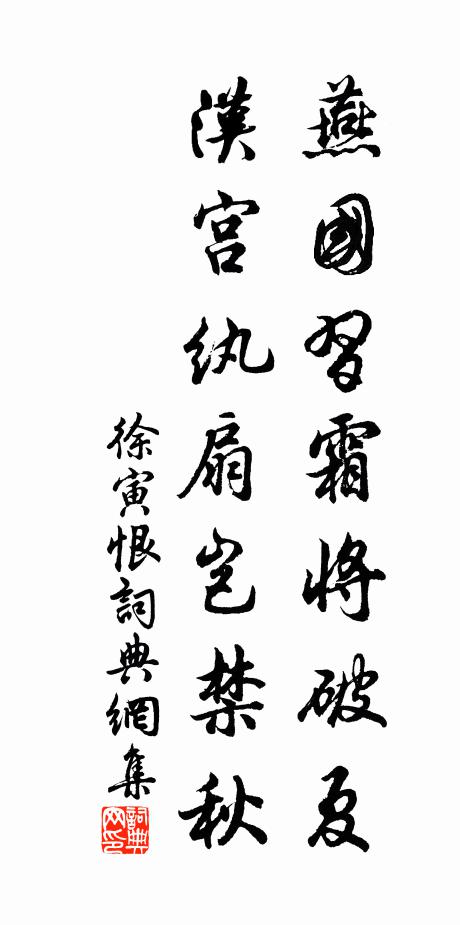 燕國習霜將破夏
漢宮紈扇豈禁秋
徐寅恨詞典網集
詞典网印